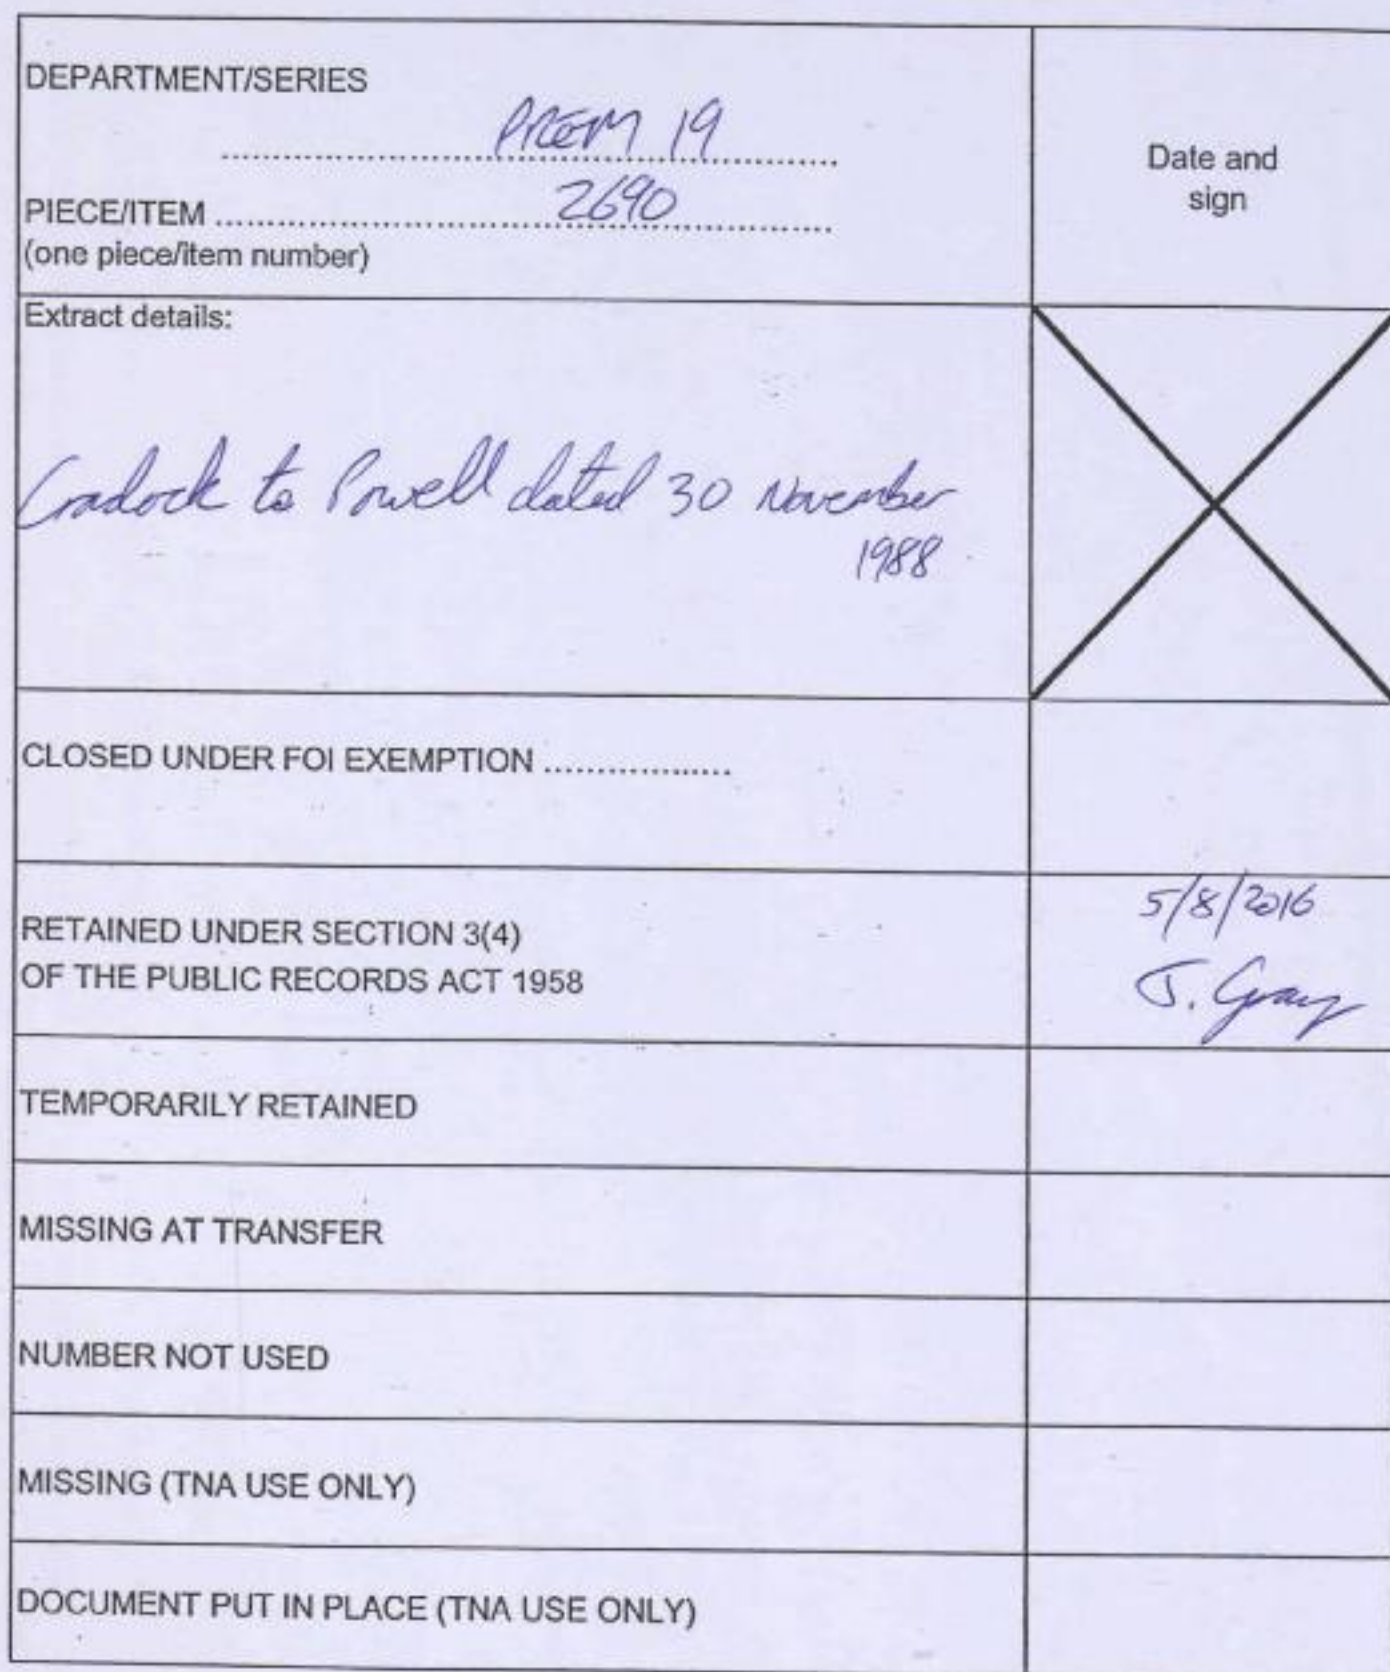 DEPARTMENT/SERIES
PREM 19
Date and
sign
PIECE/ITEM 2690
(one piece/item number)
Extract details:
Cradock to Powell dated 30 November
1988
CLOSED UNDER FOI EXEMPTION ..................
RETAINED UNDER SECTION 3(4)
OF THE PUBLIC RECORDS ACT 1958
5/8/2016
J. Gray
TEMPORARILY RETAINED
MISSING AT TRANSFER
NUMBER NOT USED
MISSING (TNA USE ONLY)
DOCUMENT PUT IN PLACE (TNA USE ONLY)